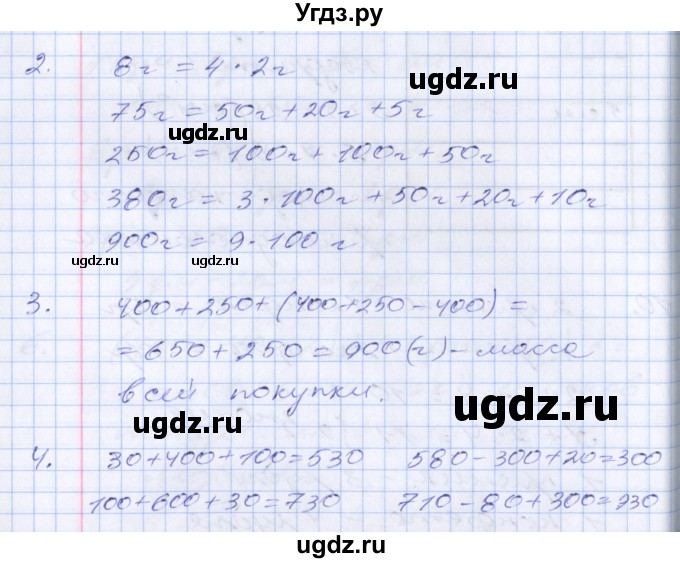 Угдз.ру
2. 8г = 4 · 2г
ugdz.ru
75г = 50г + 20г + 5г
ugdz.ru
250г = 100г + 100г + 50г
380г = 3 · 100г + 50г + 20г + 10г
900г = 9 · 100 г
ugdz.ru ugdz.ru
3. 400 + 250 + (400 + 250 - 400) =
= 650 + 250 = 900 (г) - масса
всей покупки.
ugdz.ru
ugdz.ru
4. 30 + 400 + 100 = 530 580 - 300 + 20 = 300
100 + 600 + 30 = 730 710 - 80 + 300 = 930
ugdz.ru